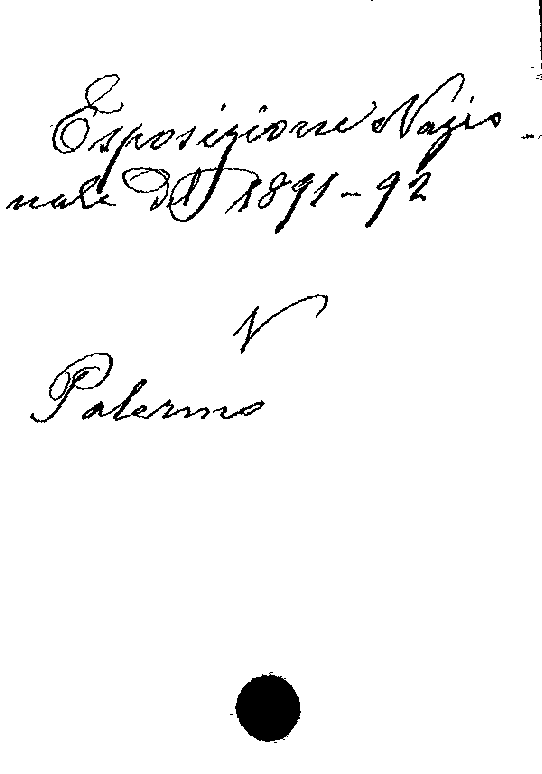 Esposizione Nazio
nale del 1891-92
V
Palermo